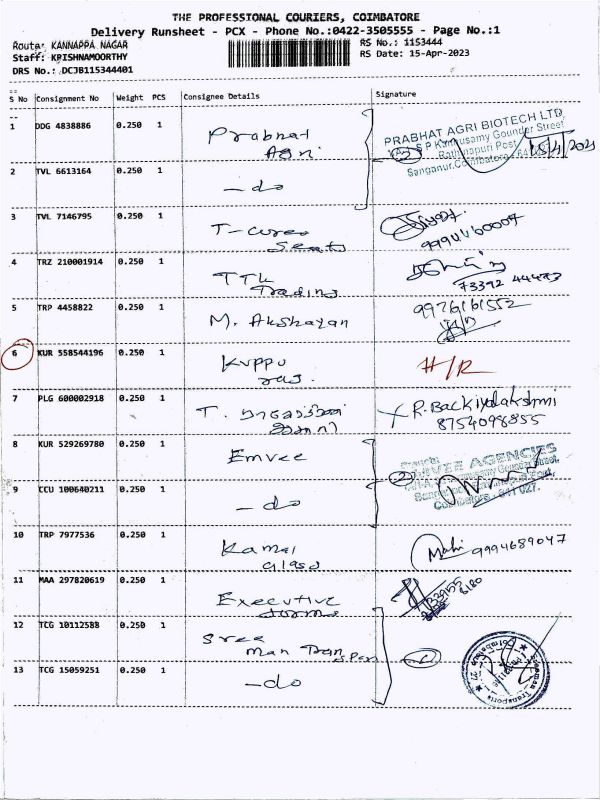 THE PROFESSIONAL COURIERS, COIMBATORE
Delivery Runsheet - PCX - Phone No.:0422-3505555 - Page No.:1
Route: KANNAPPA NAGAR
RS No.: 1153444
Staff: KRISHNAMOORTHY
RS Date: 15-Apr-2023
DRS No.: DCJB115344401
S No Consignment No Weight PCS Consignee Details Signature
1 DDG 4838886 0.250 1 Prabhat
Agri
PRABHAT AGRI BIOTECH LTD,
Street,
Rathinapuri Post
Sanganur, Coimbatore - 641
15/4/2023
2 TVL 6613164 0.250 1 - do
3 TVL 7146795 0.250 1 T-Cures
Seats
4 TRZ 210001914 0.250 1 TTK
Trading
73392
5 TRP 4458822 0.250 1 M. Akshayan
9976161552
6 KUR 558544196 0.250 1 Kuppu
H/R
7 PLG 600002918 0.250 1 T.
R. Backiyalakshmi
8754098855
8 KUR 529269780 0.250 1 Emvee
EMVEE AGENCIES
Street,
Coimbatore - 641 027.
9 CCU 100640211 0.250 1 - do
10 TRP 7977536 0.250 1 Kamal
Glass
Mahi 9994689047
11 MAA 297820619 0.250 1 Executive
12 TCG 10112588 0.250 1 Sree
Man Trans
Sreeman Transports
Coimbatore - 27
13 TCG 15059251 0.250 1 - do